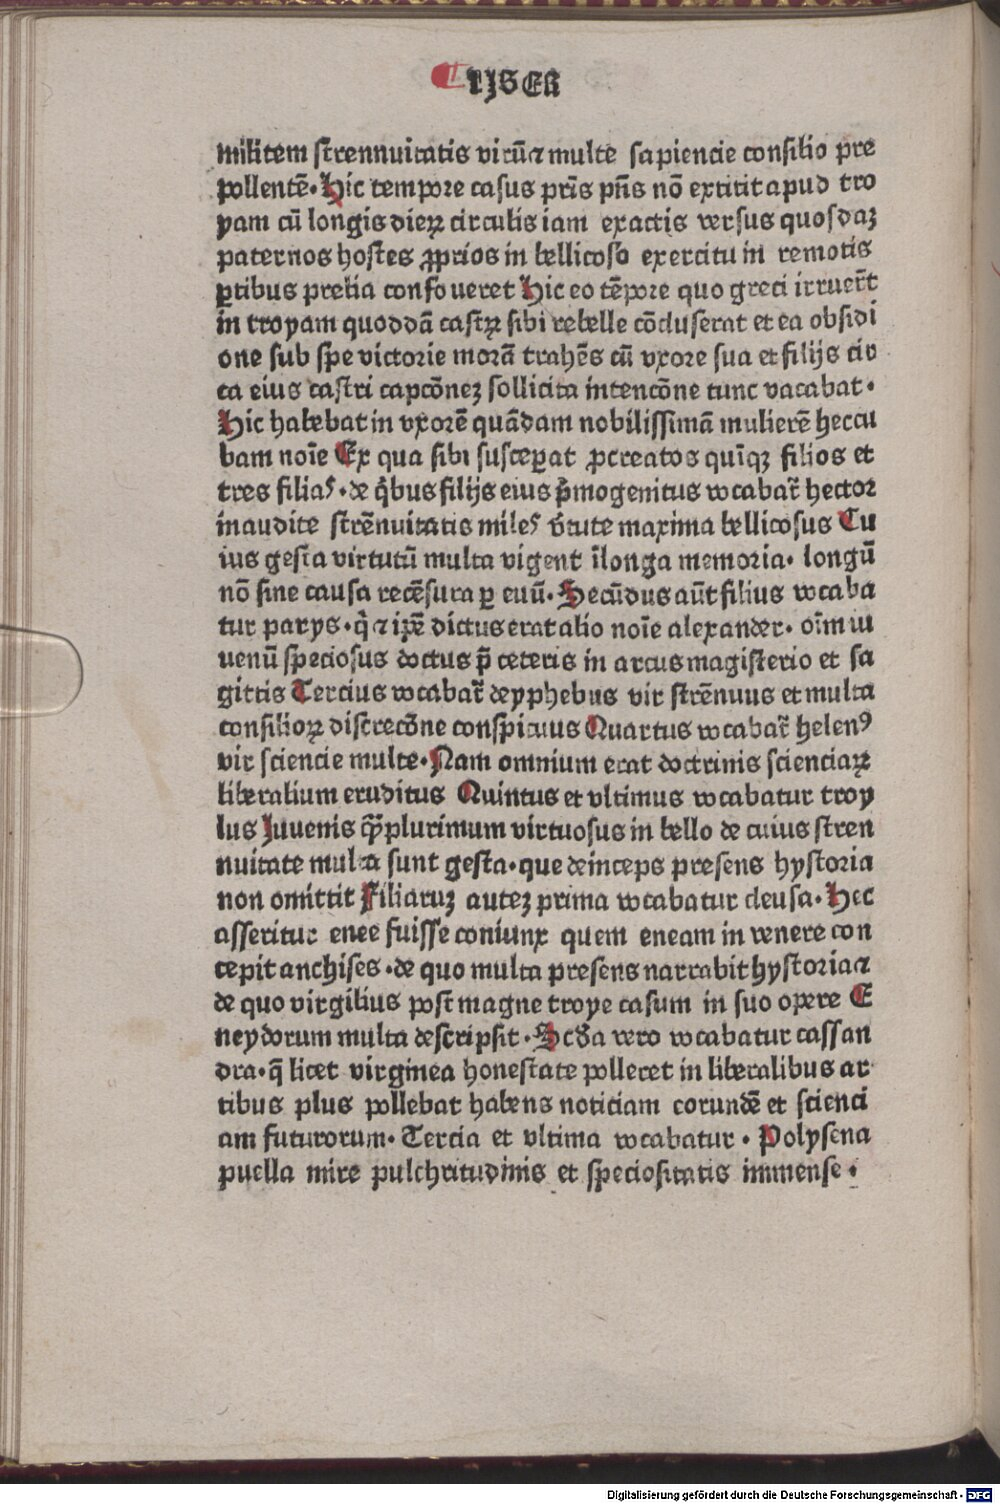 ¶ LIBER
militem strennuitatis virū ⁊ multe sapiencie consilio pre
pollentē. Hic tempore casus pr̄is pn̄s nō extitit apud tro
yam cū longis dieꝝ circulis iam exactis versus quosdaʒ
paternos hostes ꝓprios in bellicoso exercitu in remotis
ꝑtibus prelia confoueret Hic eo tēpore quo greci irruer̄t
in troyam quoddā castꝝ sibi rebelle cōcluserat et ea obsidi
one sub spe victorie morā trahēs cū vxore sua et filijs cir
ca eius castri capcōneʒ sollicita intencōne tunc vacabat.
Hic habebat in vxorē quādam nobilissimā mulierē heccu
bam noīe Ex qua sibi susceperat ꝓcreatos quīqʒ filios et
tres filias. de q̄bus filijs eius p̄mogenitus vocabat̄ hector
inaudite strēnuitatis miles v̄tute maxima bellicosus Cu
ius gesta virtutū multa vigent ī longa memoria. longū
nō sine causa recēsura ꝑ euū. Secūdus aūt filius vocaba
tur parys. q̄ ⁊ ip̄e dictus erat alio noīe alexander. oīm iu
uenū speciosus doctus p̄ ceteris in arcus magisterio et sa
gittis Tercius vocabat̄ deyphebus vir strēnuus et multa
consilioꝝ discrecōne conspicuus Quartus vocabat̄ helenꝰ
vir sciencie multe. Nam omnium erat doctrinis scienciaꝝ
liberalium eruditus Quintus et vltimus vocabatur troy
lus Juuenis qͣꝫplurimum virtuosus in bello de cuius stren
nuitate multa sunt gesta. que deinceps presens hystoria
non omittit Filiaruʒ auteʒ prima vocabatur cleusa. Hec
asseritur enee fuisse coniunx quem eneam in venere con
cepit anchises. de quo multa presens narrabit hystoria ⁊
de quo virgilius post magne troye casum in suo opere E
neydorum multa descripsit. Scd̄a vero vocabatur cassan
dra. q̄ licet virginea honestate polleret in liberalibus ar
tibus plus pollebat habens noticiam eorundē et scienci
am futurorum. Tercia et vltima vocabatur. Polysena
puella mire pulchritudinis et speciositatis immense.
Digitalisierung gefördert durch die Deutsche Forschungsgemeinschaft - DFG